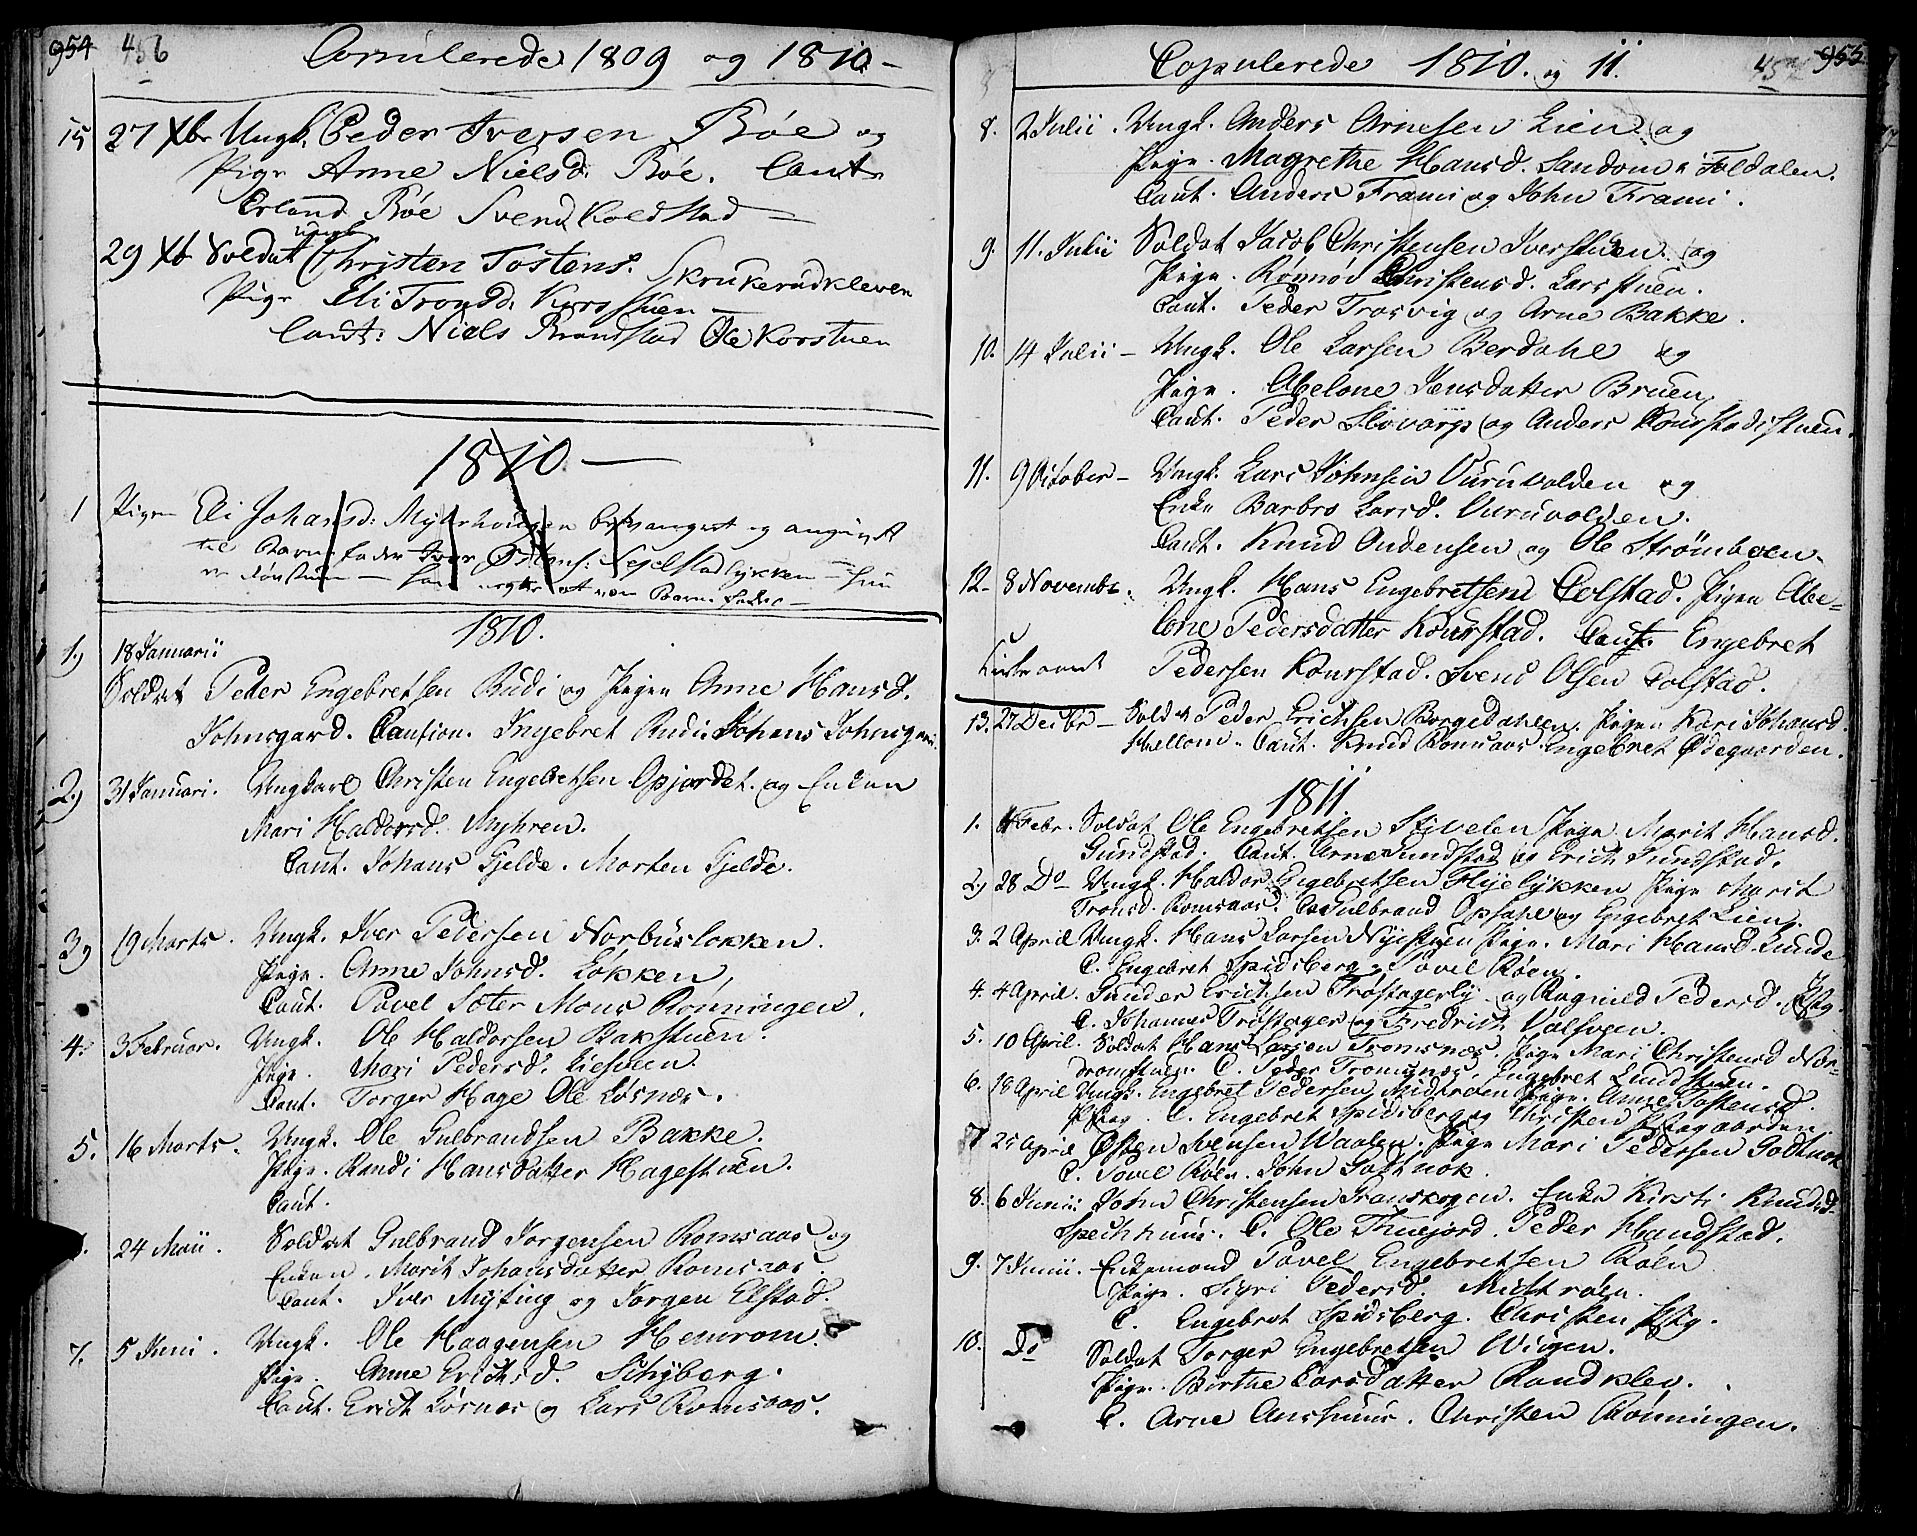 954 456 Copulerede 1809 og 1810
15 27 Xbr Ungk. Peder Iversen Bóe og
Pige Anne Nielsd: Bóe. Caut
Erland Bóe Svend Koldstad
29 Xb Soldat ungk Christen Tostens. Skrukerudkleven
Pige Eli Trondd: Korsstuen
Caut: Niels Brandstad Ole Korstuen
1810
1 Pigen Eli Johansd: besvangret og angivet
til Barnefader Iver
at være Barnefader
1810.
1) 18 Januarii
Soldat Peder Engebretsen Rudi og Pigen Anne Hansd.
Johnsgard. Caution. Ingebret Rudi. Johans Johnsgard.
2) 31 Januari. Ungkarl Christen Engebretsen Opjordet. og Enken
Mari Haldorsd. Myhren.
Caut. Johans Gjelde. Morten Gjelde.
3) 19 Marts. Ungk. Iver Pedersen Norbuslokken.
Pige. Anne Johnsd. Løkken,
Caut. Povel Soter Mons Rønningen.
4. 3 Februar. Ungk. Ole Haldorsen Bakstuen.
Pige. Mari Pedersd. Liesveen.
Caut. Torger Hage Ole Løsnæs.
5. 16 Marts. Ungk. Ole Gulbrandsen Bakke.
Pige. Randi Hansdatter Hagestuen.
Caut.
24 Maii. Soldat Gulbrand Jorgensen Romsaas og
Enken. Marit Johansdatter Romsaas.
Caut. Iver Myting og Jorgen Elstad.
7. 5 Juni. Ungk. Ole Haagensen Hemrom.
Pige. Anne Erichsd. Schyberg.
Caut. Erich Losnæs og Lars Romsaas.
Copulerede 1810. og 11. 955
8. 2 Julii. Ungk. Anders Arnesen Lien. og
Pige. Magrethe Hansd. Sandom i Foldalen.
Caut. Anders Frami og John Frami.
9. 11. Julii Soldat Jacob Christensen Iverstuen. og
Pige. Rønnøv Christensd. Larsstuen.
Caut. Peder Trosvig og Arne Bakke.
10. 14 Julii - Ungk. Ole Larsen Berdahl og
Pige. Abelone Jensdatter Bruen,
Caut. Peder Slovarp og Anders Kourstadstuen.
11. 9 October - Ungk. Lars Johnsen Vuruvolden og
Enke Barbro Larsd. Vuruvolden.
Caut. Knud Andensen og Ole Strømboen.
12 - 8 Novembr. Ungk. Hans Engebretsen Colstad. Pigen Abe-
lone Pedersdatter Kourstad. Caut. Engebret
Pedersen Kourstad. Svend Olsen Colstad.
13. 27 Decbr - Sold Peder Erichsen Borgedahlen, Pigen Kari Johansd.
Mellom. Caut. Knud Romsaas. Engebret Ødegaarden.
1811.
1. Febr. Soldat Ole Engebretsen Stivelen Pige Marit Hansd.
Sundstad. Caut. Arne Sundstad og Erich Sundstad.
2) 28 Do Ungk. Haldor Engebretsen Flyelykken Pige Marit
Tronsd. Romsaas. C. Gulbrand Opsahl og Engebret Lien.
3. 2 April Ungk. Hans Larsen Nystuen Pige. Mari Hansd. Lunde
C. Engebret Spidsberg. Povel Røen.
4. 4 April. Erichsen Trøstagerly. og Ragnild Pedersd.
C. Johannes Trøstager og Fredrich Volsveen.
5. 10 April. Soldat Hans Larsen Tromsnæs. Pige Mari Christensd Nor-
dromstuen. C. Peder Tromsnæs, Ingebret Lundstuen.
6. 18 April Ungk. Engebret Pedersen Midtroen Pige. Anne Tostensd.
C. Engebret Spidsberg og Christen
7. 25 April Østen Iversen Waalen. Pige Mari Pedersen Godtnok
C. Povel Røen. John Godtnok.
8. 6 Junii John Christensen Granskogen. Enke Kirsti Knudsd.
Spechhuus. C. Ole Thuejord. Peder Handstad.
9. 7 Junii. Enkemand Povel Engebretsen Roln
Pige. Sigri Pedersd. Midtrøen.
C. Engebret Spidsberg. Christen
10. Do Soldat Torger Engebretsen Wiigen.
Pige. Birthe Larsdatter Randklev.
C. Arne Anshuus. Christen Rønningen.